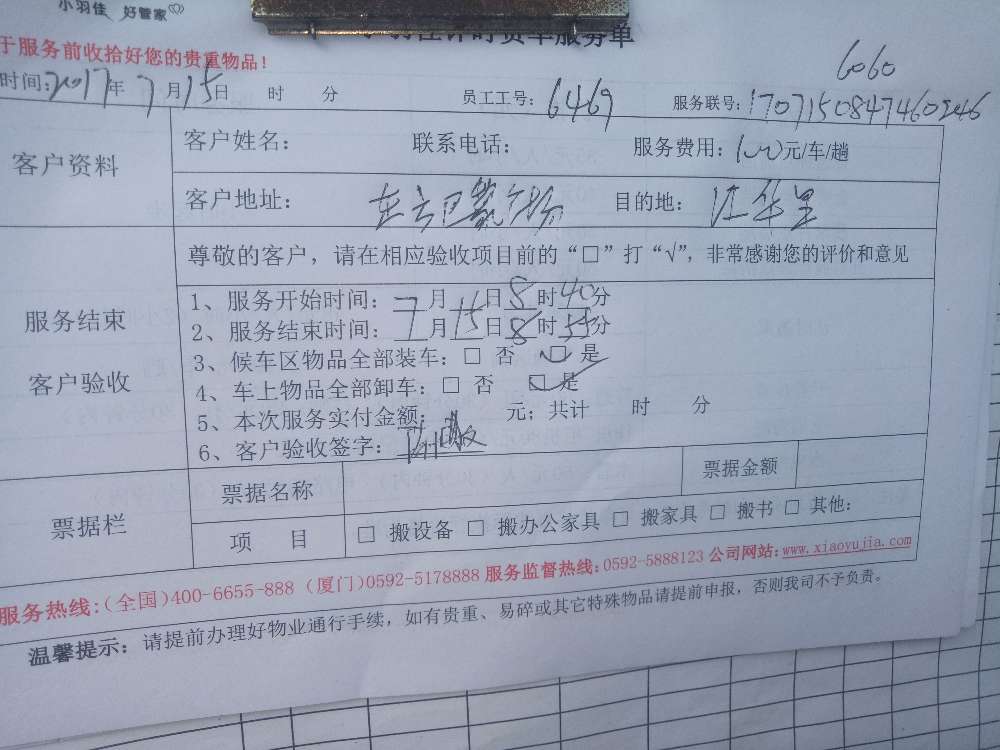 小羽佳 好管家
计时货车服务单
于服务前收拾好您的贵重物品！
6060
时间：2017年7月15日 时 分 员工工号：6469 服务联号：1707150847460246
客户资料
客户姓名： 联系电话： 服务费用：100元/车/趟
客户地址： 目的地：江华里
尊敬的客户，请在相应验收项目前的“□”打“√”，非常感谢您的评价和意见
服务结束
客户验收
1、服务开始时间：7月15日8时40分
2、服务结束时间：7月15日8时55分
3、候车区物品全部装车：□ 否 □ 是
4、车上物品全部卸车：□ 否 □ 是
5、本次服务实付金额： 元；共计 时 分
6、客户验收签字：
票据栏
票据名称 票据金额
项 目 □ 搬设备 □ 搬办公家具 □ 搬家具 □ 搬书 □ 其他：
服务热线：（全国）400-6655-888（厦门）0592-5178888 服务监督热线：0592-5888123 公司网站：www.xiaoyujia.com
温馨提示：请提前办理好物业通行手续，如有贵重、易碎或其它特殊物品请提前申报，否则我司不予负责。